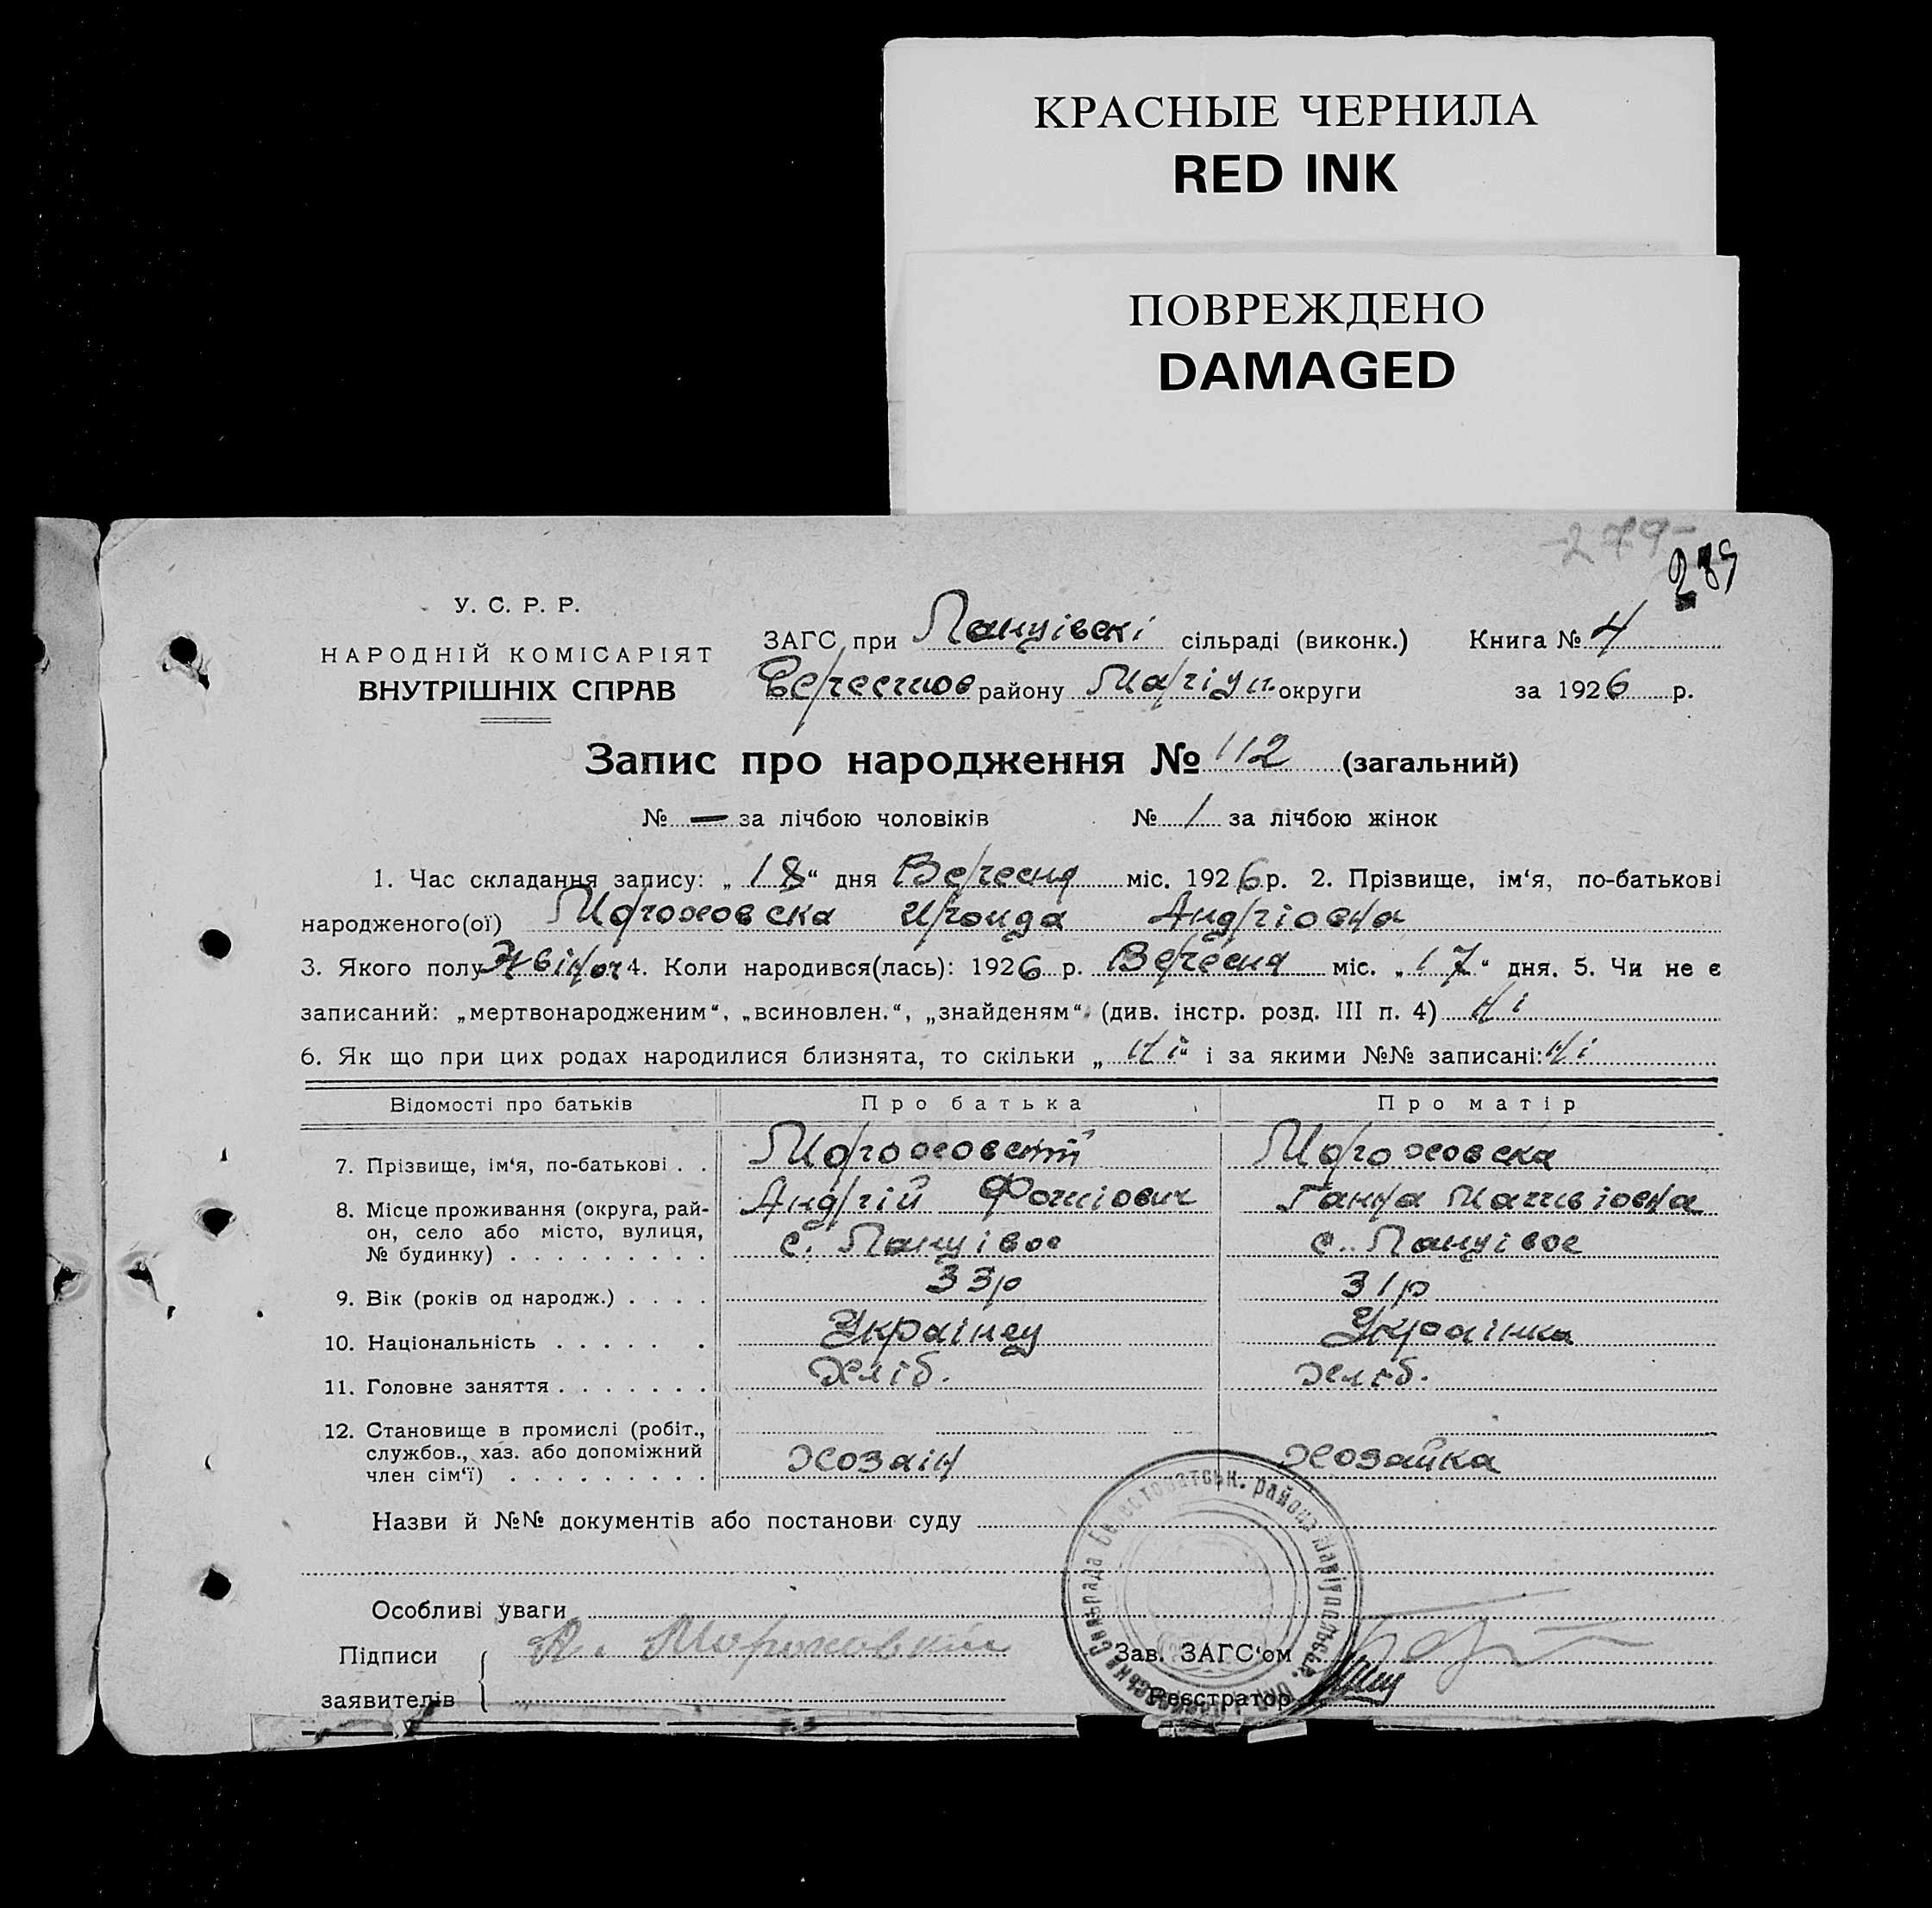 КРАСНЫЕ ЧЕРНИЛА
RED INK
ПОВРЕЖДЕНО
DAMAGED
-279-
У. С. Р. Р.
НАРОДНІЙ КОМІСАРІЯТ
ВНУТРІШНІХ СПРАВ
ЗАГС при сільраді (виконк.) Книга № 4
району Маріуп. округи за 1926 р.
Запис про народження № 112 (загальний)
№ — за лічбою чоловіків № 1 за лічбою жінок
1. Час складання запису: „ 18 “ дня Вересня міс. 1926 р. 2. Прізвище, ім‘я, по-батькові
народженого(ої) Мороховска Ираида Андріовна
3. Якого полу 4. Коли народився(лась): 1926 р. Вересня міс. „ 17 “ дня. 5. Чи не є
записаний: „мертвонародженим“, „всиновлен.“, „знайденям“ (див. інстр. розд. III п. 4) ні
6. Як що при цих родах народилися близнята, то скільки „ ні “ і за якими №№ записані: ні
Відомості про батьків Про батька Про матір
7. Прізвище, ім‘я, по-батькові . . Мороховский Мороховска
Андрій Фоміович Ганна Матвіовна
8. Місце проживання (округа, рай-
он, село або місто, вулиця,
№ будинку) . . . . . . . . . с. Ланцівое с. Ланцівое
9. Вік (років од народж.) . . . . 33р 31р
10. Національність . . . . . . Украінец Украінка
11. Головне заняття . . . . . . . Хліб. Хліб.
12. Становище в промислі (робіт.,
службов., хаз. або допоміжний
член сім‘ї) . . . . . . . . . Хозаін Хозайка
Назви й №№ документів або постанови суду
Особливі уваги
Підписи А. Мороховский Зав. ЗАГС‘ом
заявителів Реєстратор